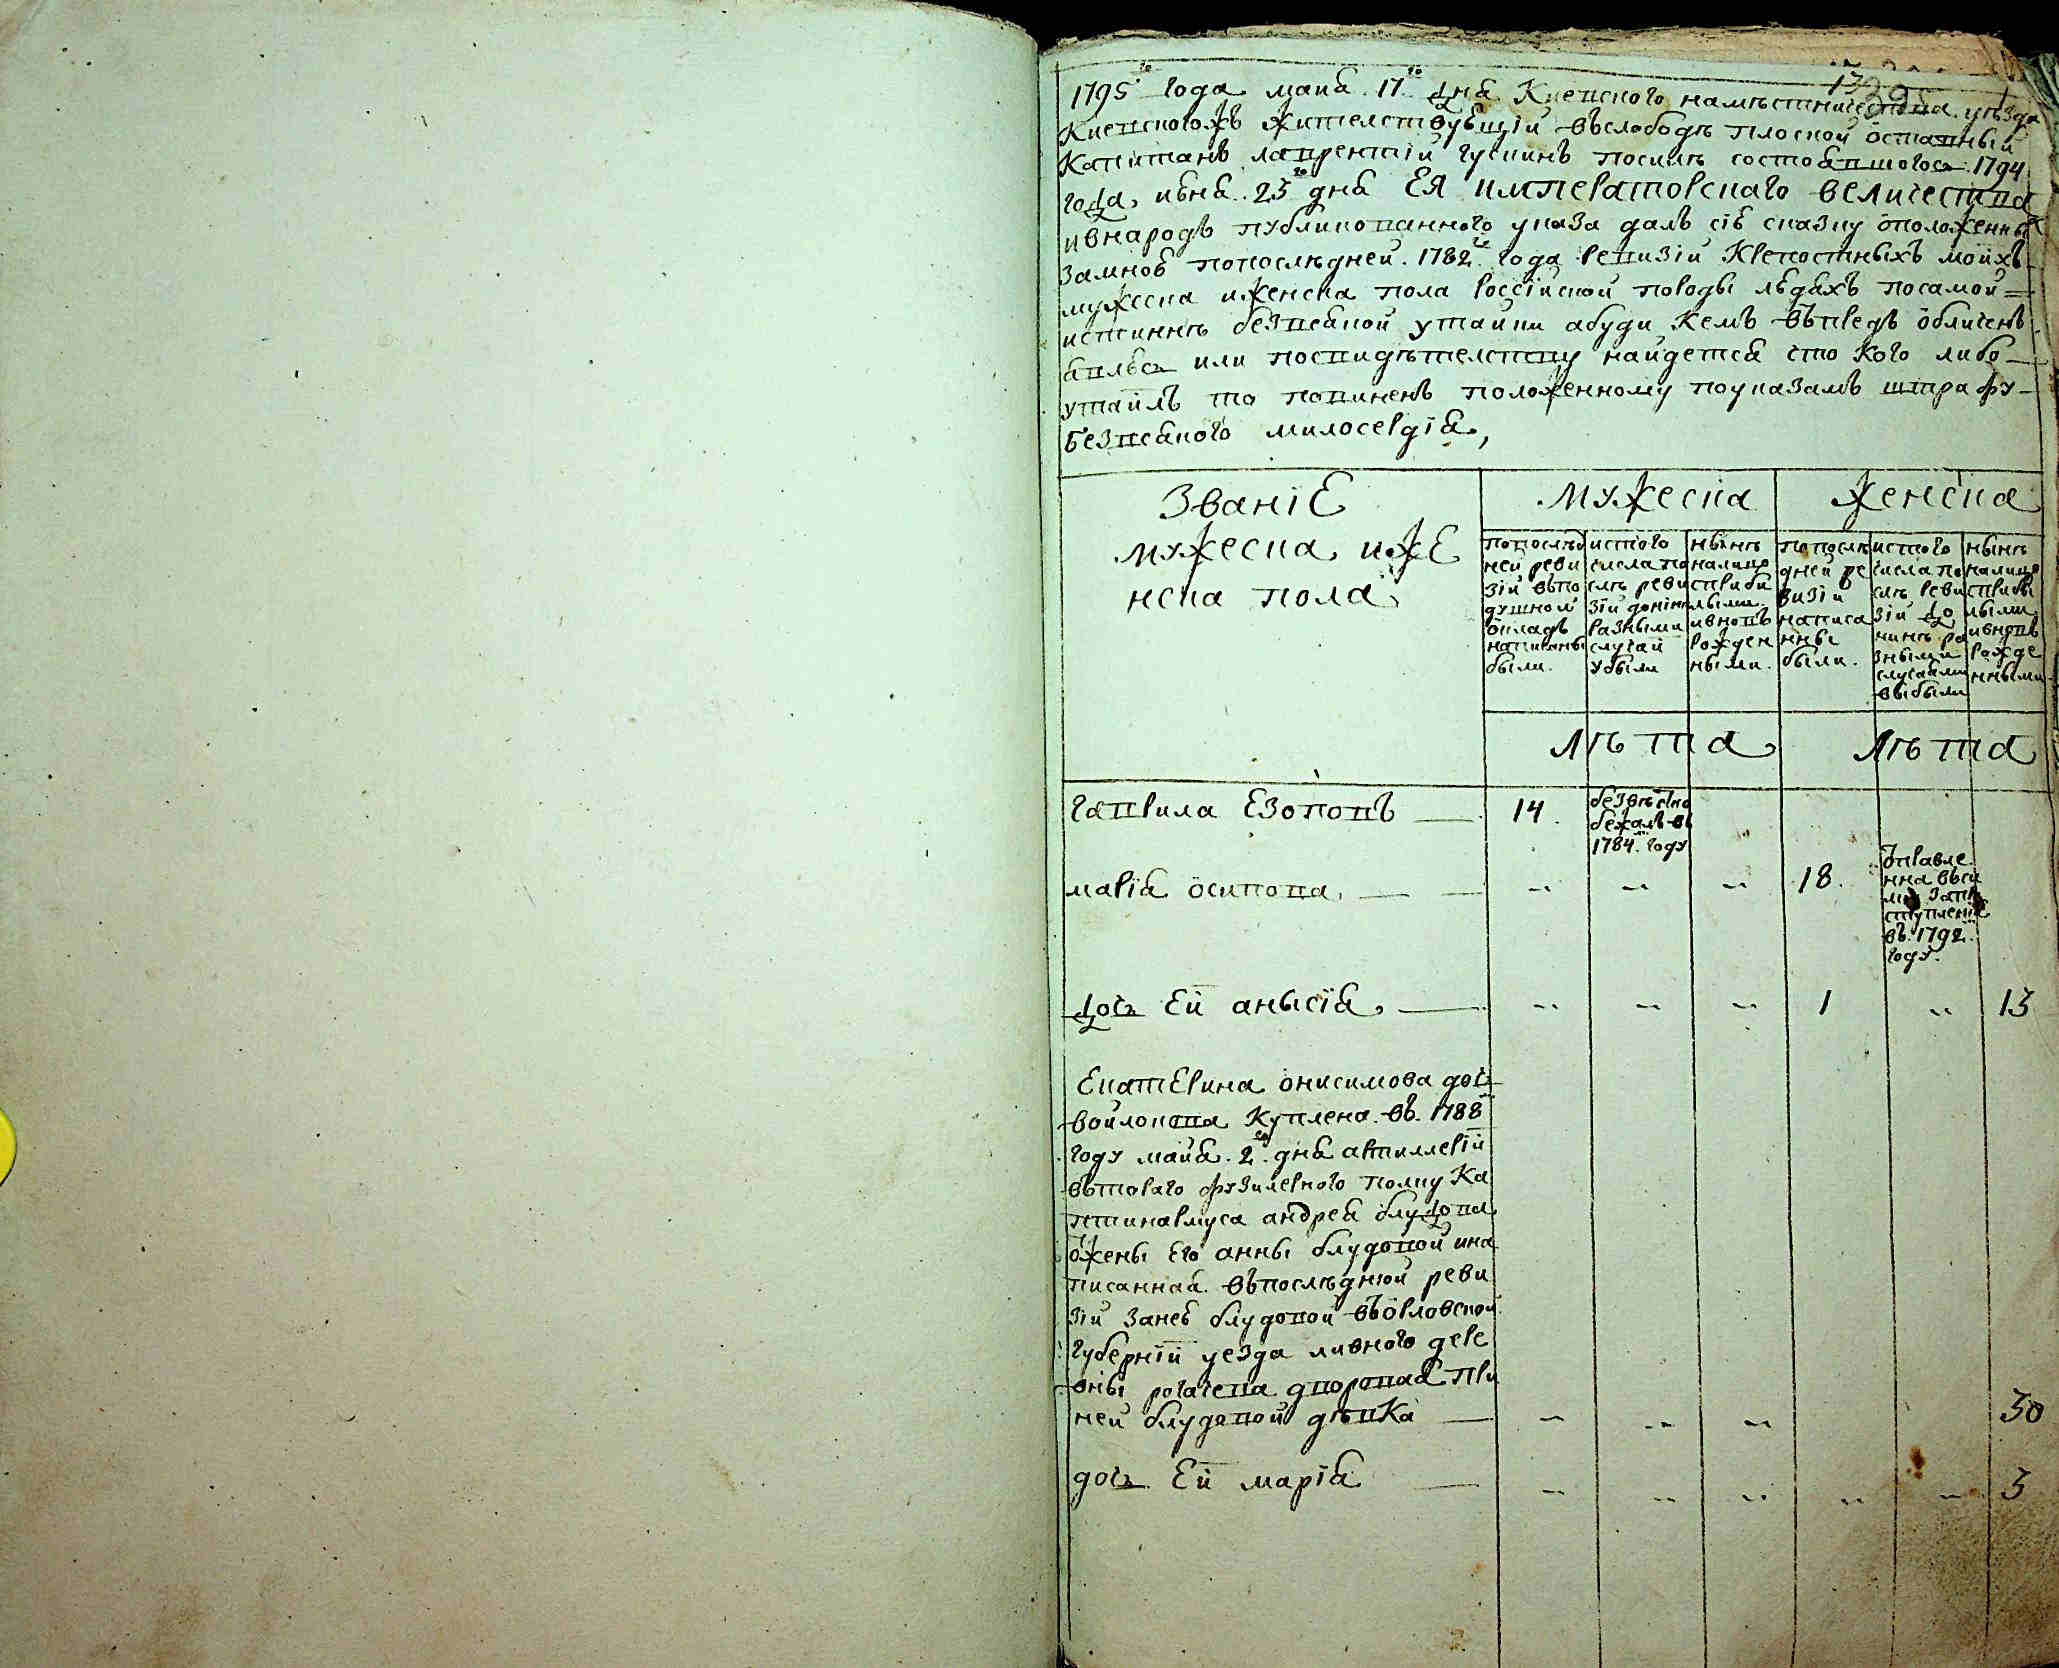 1795го года маия 17го дня Киевского наместничества уезда
Киевскогожъ жителствующий въслободѣ плоской оставный
Капитанъ лаврентий гускинъ посилѣ состоявшогось 1794
года июня 23го дня Ея императорскаго величества
ивнародъ публикованного указа далъ сию сказку ôположенны
замною попослѣдней 1782го года ревизïи Крепостныхъ моихъ
мужеска иженска пола россïиской породы людяхъ посамой
истиннѣ безвсякой утайки абуди Кемъ въпредъ ôбличенъ
явлюсь или посвидѣтелству найдется что Кого либо
утаилъ то повиненъ положенному поуказамъ штрафу
Безвсякого милосердïя,
Званïе
мужеска ижЕ
нска пола
Мужеска
женска
попослѣд
ней реви
зïй въпо
душной
ôкладъ
написаны
были
истого
числа по
слѣ реви
зïй донінѣ
разными
случай
убыли
нынѣ
налицо
сприбы
лыми
ивновъ
рожден
ными
попослѣ
дней ре
визïй
написа
нны
были
истого
числа по
слѣ реви
зïй до
нинѣ ра
зными
случаями
выбыли
нынѣ
налицо
сприбы
лыми
ивновъ
рожде
нными
Лѣта
Лѣта
гаврила Езоповъ 14 безвѣстно
бежалъ въ
1784м году
марïя ôсипова 18 ôтправле
нна въси
лку запре
ступленïя
въ 1792м
году
дочь Ей анысïя 1 13
Екатерина онисимова дочь
войлокова Куплена въ 1788м
году маия 2го дня артиллерïй
въторого фузилерного полку Ка
птинармуса андрея блудова
ôжены Его анны блудовой ина
писанная въпослѣднюй реви
зïй занею блудовой въôрловской
губернïй уезда ливного дере
вны рогачева дворовая при
ней блудовой дѣвка 30
дочь Ей марïя 3